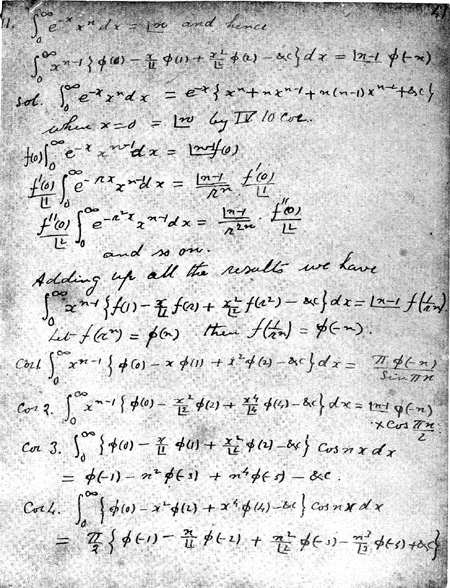 41
11. ∫₀^∞ e^{-x} x^n dx = |n and hence
∫₀^∞ x^{n-1} {φ(0) - x/|1 φ(1) + x²/|2 φ(2) - &c} dx = |n-1 φ(-n)
Sol. ∫₀^∞ e^{-x} x^n dx = e^{-x} {x^n + n x^{n-1} + n(n-1) x^{n-2} + &c}
when x=0 = |n by IV 10 Cor.
f(0) ∫₀^∞ e^{-x} x^{n-1} dx = |n-1 f(0)
f'(0)/|1 ∫₀^∞ e^{-rx} x^{n-1} dx = |n-1/r^n · f'(0)/|1
f''(0)/|2 ∫₀^∞ e^{-r²x} x^{n-1} dx = |n-1/r^{2n} · f''(0)/|2
and so on.
Adding up all the results we have
∫₀^∞ x^{n-1} {f(1) - x/|1 f(r) + x²/|2 f(r²) - &c} dx = |n-1 f(1/r^n).
Let f(r^n) = φ(n) then f(1/r^n) = φ(-n).
Cor 1 ∫₀^∞ x^{n-1} {φ(0) - x φ(1) + x² φ(2) - &c} dx = π φ(-n)/Sin πn
Cor 2. ∫₀^∞ x^{n-1} {φ(0) - x²/|2 φ(2) + x⁴/|4 φ(4) - &c} dx = |n-1 φ(-n)
× Cos πn/2.
Cor 3. ∫₀^∞ {φ(0) - x/|1 φ(1) + x²/|2 φ(2) - &c} Cos nx dx
= φ(-1) - n² φ(-3) + n⁴ φ(-5) - &c.
Cor 4. ∫₀^∞ {φ(0) - x² φ(2) + x⁴ φ(4) - &c} Cos nx dx
= π/2 {φ(-1) - n/|1 φ(-2) + n²/|2 φ(-3) - n³/|3 φ(-4) + &c}